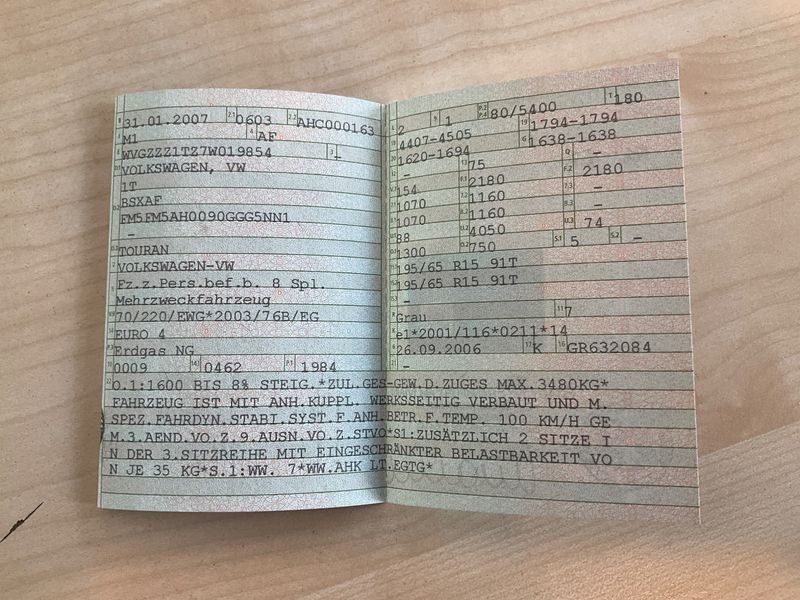 B 31.01.2007 2.1 0603 2.2 AHC000163
J M1 4 AF
E WVGZZZ1TZ7W019854 3 -
D.1 VOLKSWAGEN, VW
1T
D.2 BSXAF
FM5FM5AH0090GGG5NN1
-
D.3 TOURAN
2 VOLKSWAGEN-VW
5 Fz.z.Pers.bef.b. 8 Spl.
Mehrzweckfahrzeug
V.9 70/220/EWG*2003/76B/EG
14 EURO 4
P.3 Erdgas NG
10 0009 14.1 0462 P.1 1984
L 2 9 1 P.2 P.4 80/5400 T 180
18 4407-4505 19 1794-1794
20 1620-1694 G 1638-1638
12 - 13 75 Q -
V.7 154 F.1 2180 F.2 2180
7.1 1070 7.2 1160 7.3 -
8.1 1070 8.2 1160 8.3 -
U.1 88 U.2 4050 U.3 74
O.1 1300 O.2 750 S.1 5 S.2 -
15.1 195/65 R15 91T
15.2 195/65 R15 91T
15.3 -
R Grau 11 7
K e1*2001/116*0211*14
6 26.09.2006 17 K 16 GR632084
21 -
22 O.1:1600 BIS 8% STEIG.*ZUL.GES-GEW.D.ZUGES MAX.3480KG*
FAHRZEUG IST MIT ANH.KUPPL. WERKSSEITIG VERBAUT UND M.
SPEZ.FAHRDYN.STABI.SYST.F.ANH.BETR.F.TEMP. 100 KM/H GE
M.3.AEND.VO.Z.9.AUSN.VO.Z.STVO*S1:ZUSÄTZLICH 2 SITZE I
N DER 3.SITZREIHE MIT EINGESCHRÄNKTER BELASTBARKEIT VO
N JE 35 KG*S.1:WW. 7*WW.AHK LT.EGTG*